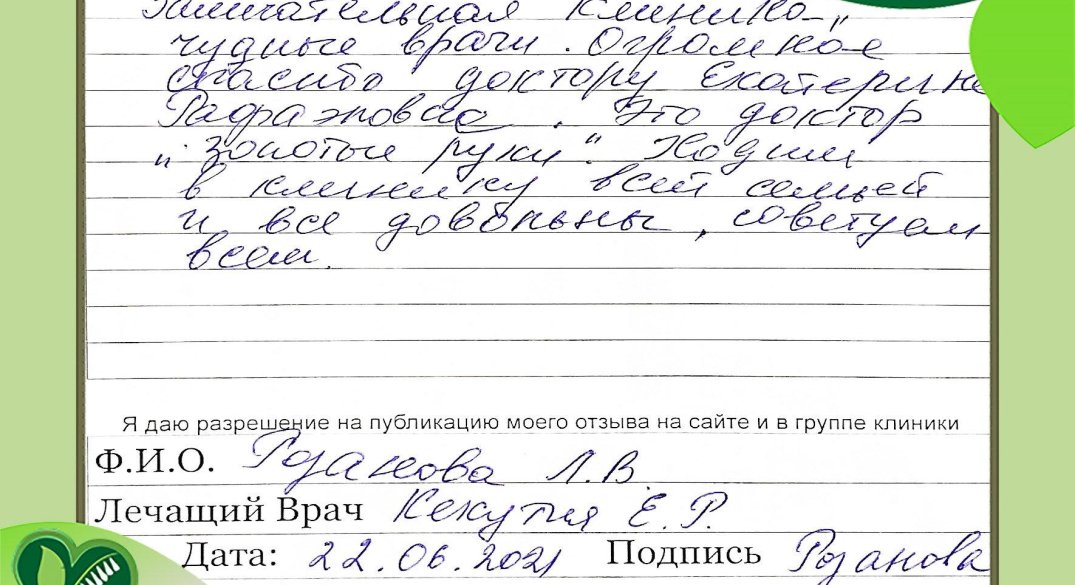 Замечательная клиника,
чудные врачи. Огромное
спасибо доктору Екатерине
Рафаэловне. Это доктор
"золотые руки". Ходим
в клинику всей семьей
и все довольны, советуем
всем.
Я даю разрешение на публикацию моего отзыва на сайте и в группе клиники
Ф.И.О. Розанова Л.В.
Лечащий Врач Кекутия Е.Р.
Дата: 22.06.2021 Подпись Розанова